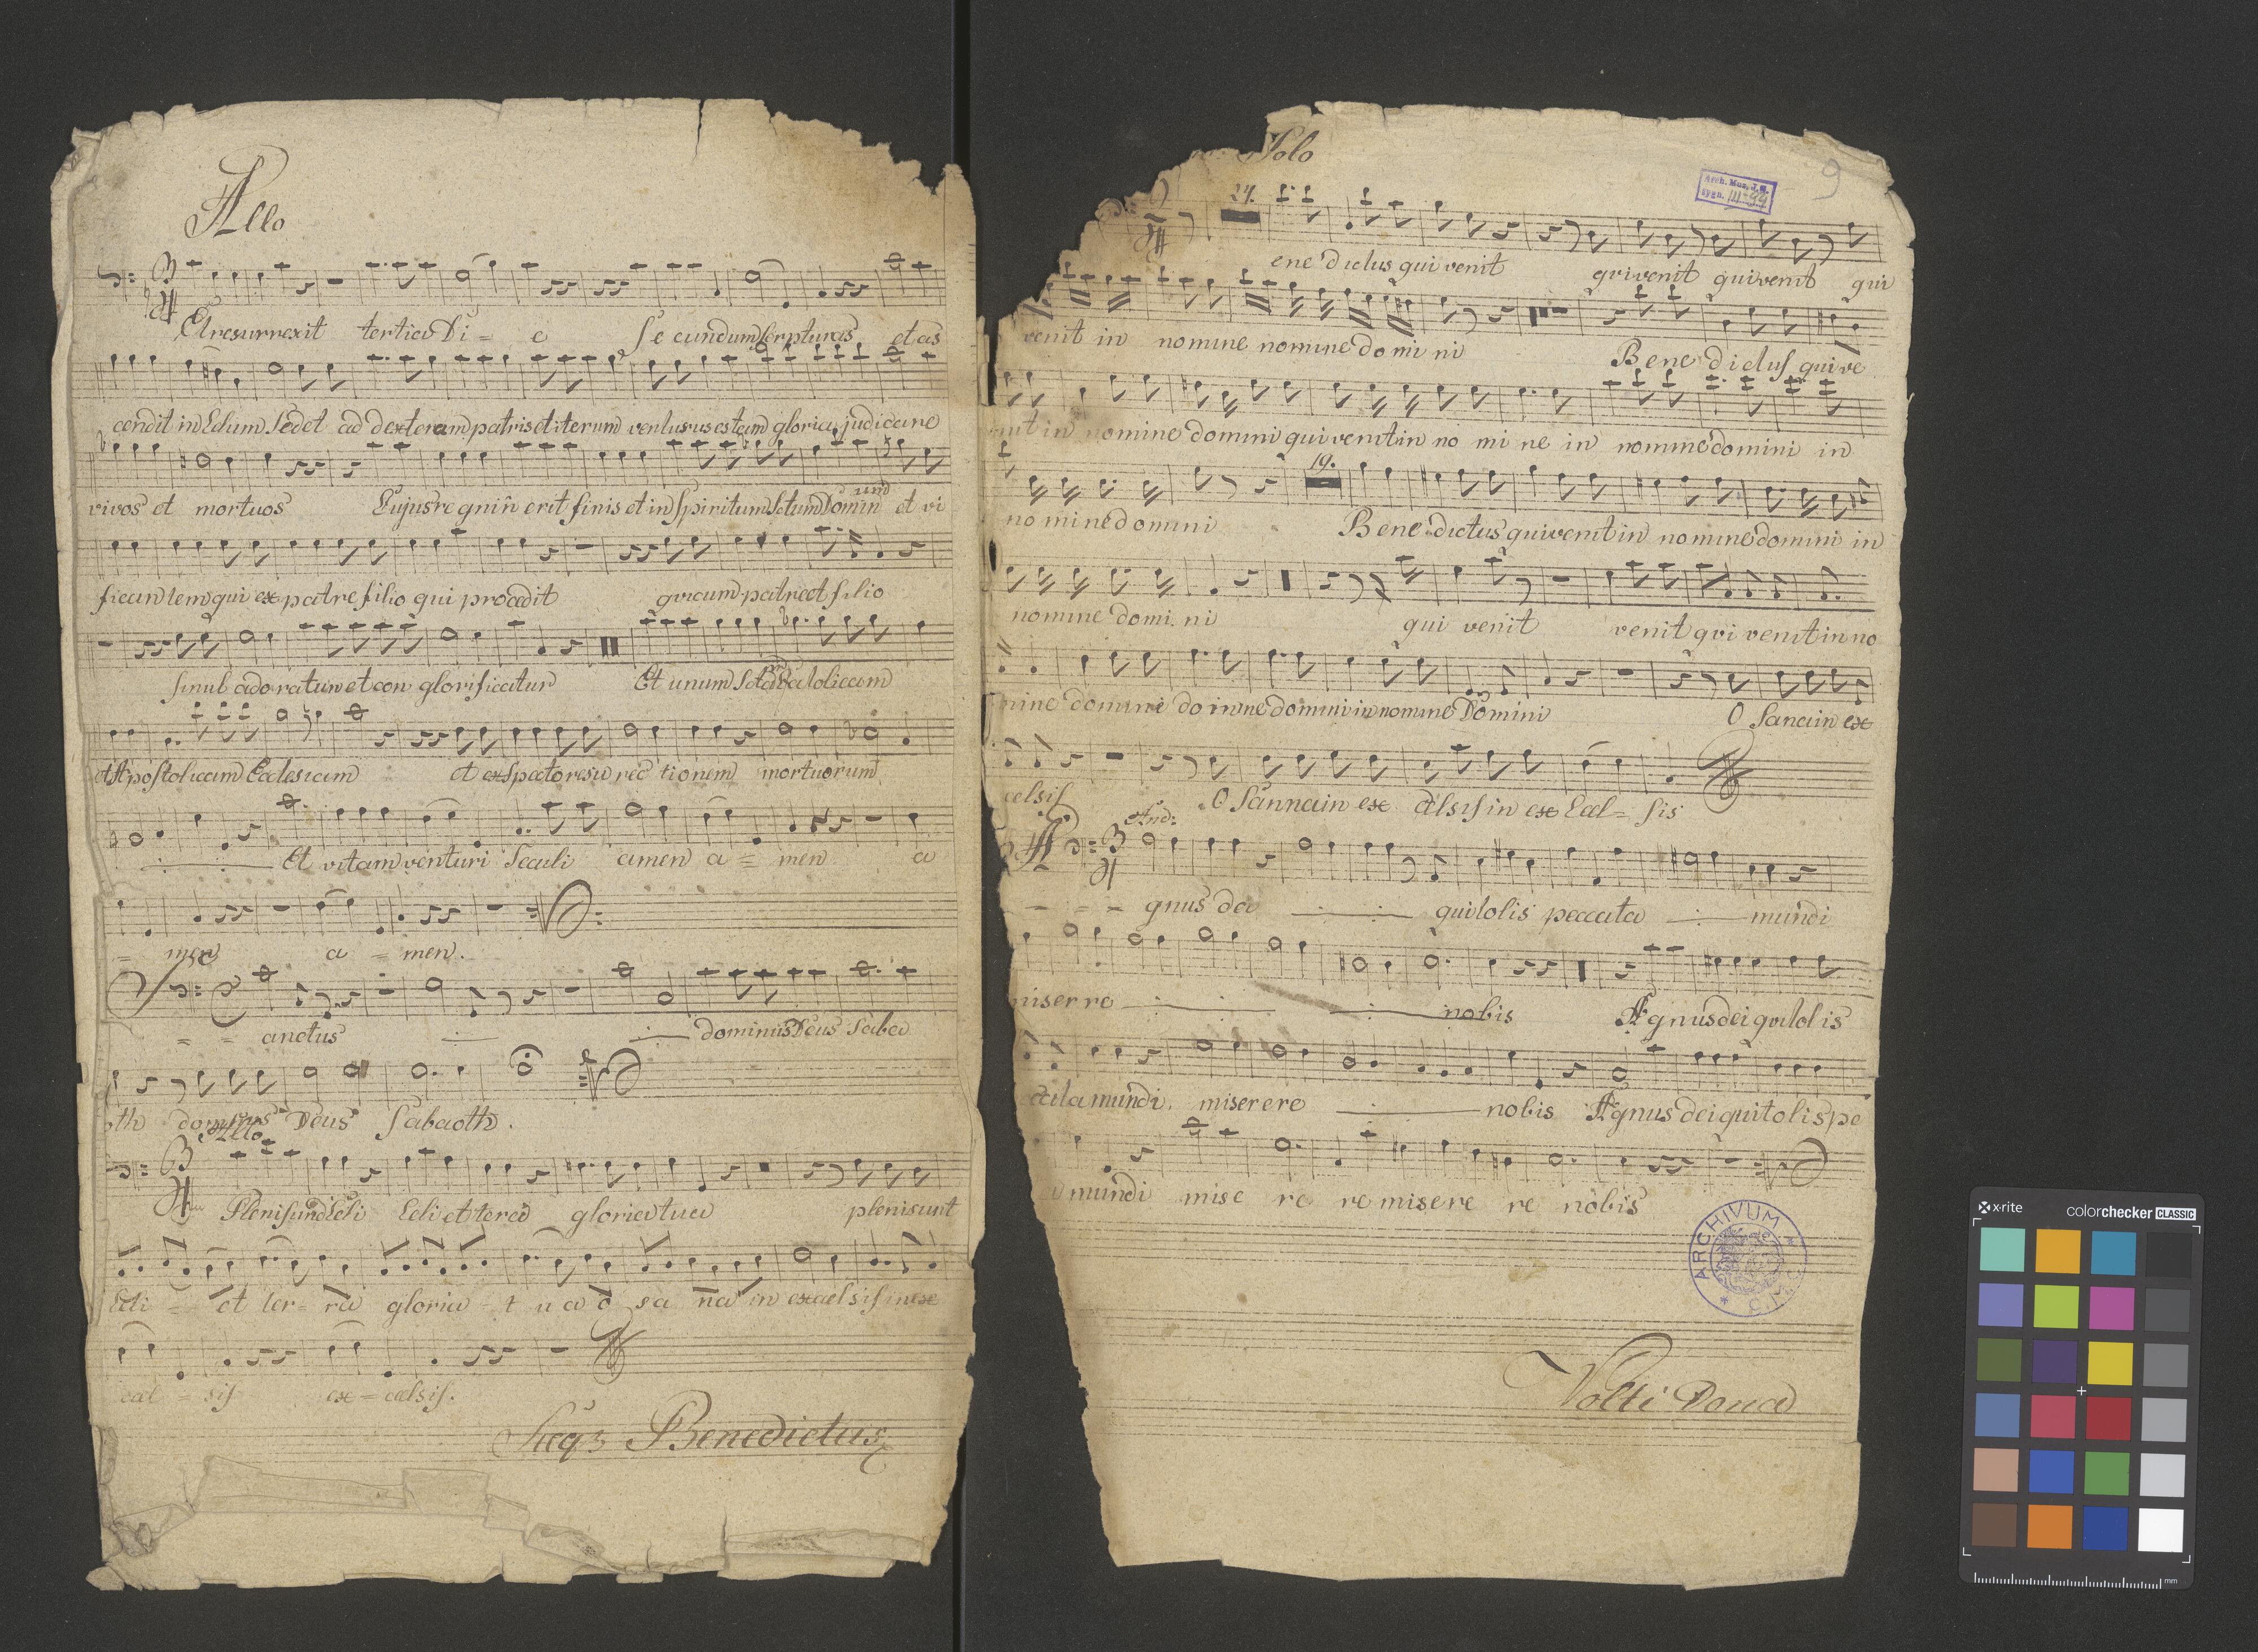 Allo
Et resurrexit tertia Di = e Se cundum Scripturas et as
cendit in Celum Sedet ad dexteram patris et iterum venturus est cum gloria judicare
vivos et mortuos Cujus regni n̄ erit finis et in Spiritum Sctum Domin num et vi
ficantem qui ex patre filio qui procedit qui cum patre et filio
simul adoratur et con glorificatur Et unum Sctam Catolicam
et Apostolicam Ecclesiam et exspecto resu rec tionem mortuorum
Et vitam venturi Seculi amen a = men a
= men a = men.
= = anctus dominus Deus Saba
oth dominus Deus Sabaoth.
Allo
Pleni sund Celi Celi et terra gloria tua pleni sunt
Celi = et ter = ra gloria - t u a o sa na in excelsis in ex
cel = sis ex = celsis.
Seqs Benedictus
Solo
9
Arch. Muz. J. G.
sygn. III-99
24.
ene dictus qui venit qui venit qui venit qui
venit in nomine nomine do mi ni Bene dictus qui ve
nit in nomine domini qui venit in no mi ne in nomine domini in
19.
no mine domini Bene dictus qui venit in nomine domini in
nomine domi. ni qui venit venit qui venit in no
mine domine domine domini in nomine Domini O Sana in ex
celsis O Sanna in ex celsis in ex Cel = sis
And:
- = - gnus dei qui tolis peccata mundi
miser re nobis Agnus dei qui tol is
ccata mundi. miserere nobis Agnus dei qui tolis pe
a mundi mise re re misere re nobis
ARCHIVUM
Volti Dona
x-rite colorchecker CLASSIC
mm